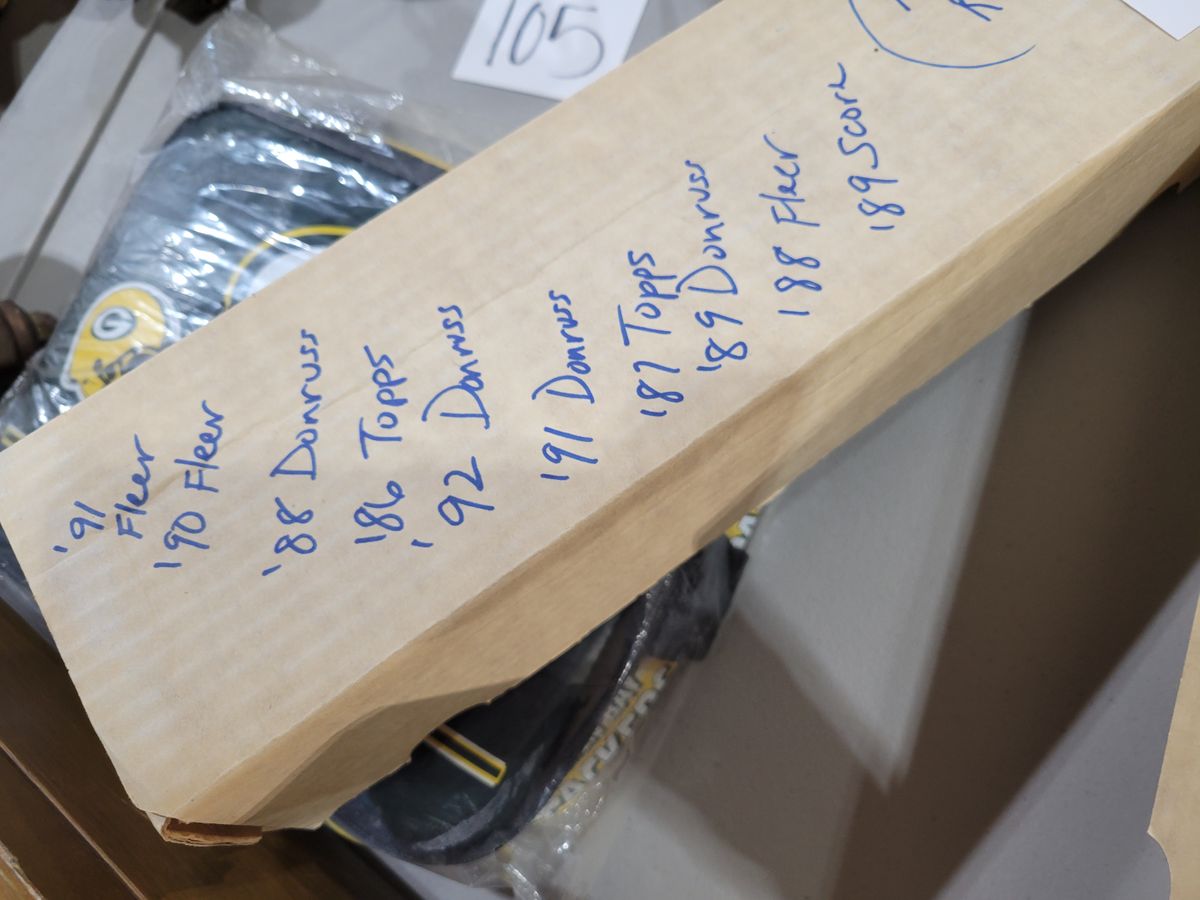 105
'91
Fleer
'90 Fleer
'88 Donruss
'86 Topps
'92 Donruss
'91 Donruss
'87 Topps
'89 Donruss
'88 Fleer
'89 Score
G